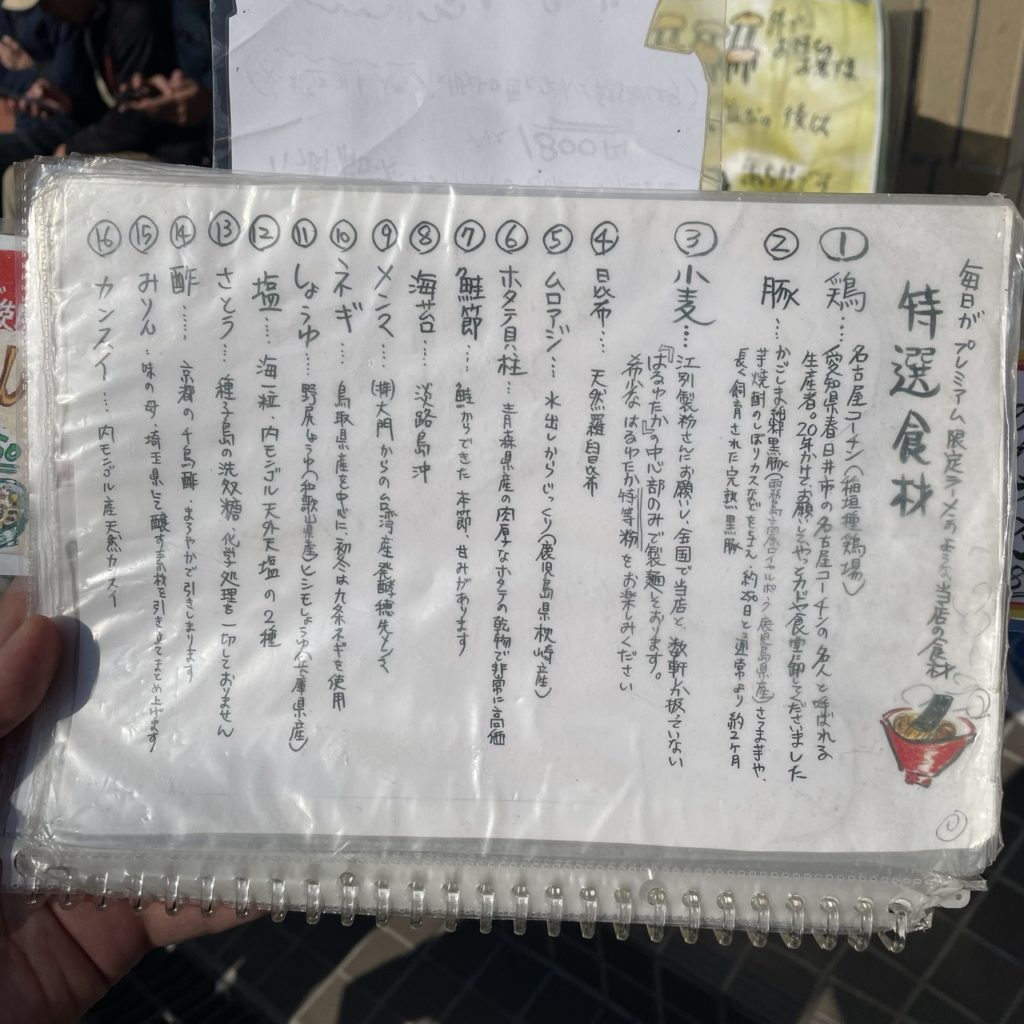 毎日がプレミアム 限定ラーメンのような当店の食材
特選食材
① 鶏… 名古屋コーチン(稲垣種鶏場)
愛知県春日井市の名古屋コーチンの名人と呼ばれる
生産者。20年かけてお願いし、やっとカドヤ食堂に卸してくださいました
② 豚… かごしま純粋黒豚(霧島高原ロイヤルポーク 鹿児島県産) さつま芋や、
芋焼酎のしぼりカスなどを与え、約250日と通常より約2ヶ月
長く飼育された完熟黒豚
③ 小麦… 江別製粉さんにお願いし、全国で当店と、数軒しか扱っていない
『はるゆたか』の中心部のみで製麺しております。
希少な はるゆたか特等粉 をお楽しみください
④ 昆布… 天然羅臼昆布
⑤ ムロアジ… 水出しからじっくり(鹿児島県枕崎産)
⑥ ホタテ貝柱… 青森県産の肉厚なホタテの乾物で非常に高価
⑦ 鮭節… 鮭からできた本節、甘みがあります
⑧ 海苔… 淡路島沖
⑨ メンマ… (株)大門からの台湾産発酵
⑩ ネギ… 鳥取県産を中心に、初冬は九条ネギを使用
⑪ しょうゆ… 野尻しょうゆ(和歌山県産)とシモしょうゆ(兵庫県産)
⑫ 塩… 海一粒、内モンゴル天外天塩の2種
⑬ さとう… 種子島の洗双糖、化学処理を一切しておりません
⑭ 酢…… 京都の千鳥酢、まろやかで引きしまります
⑮ みりん… 味の母、埼玉県にて醸す 素材を引き立てまとめ上げます
⑯ カンスイ…… 内モンゴル産天然カンスイ
①